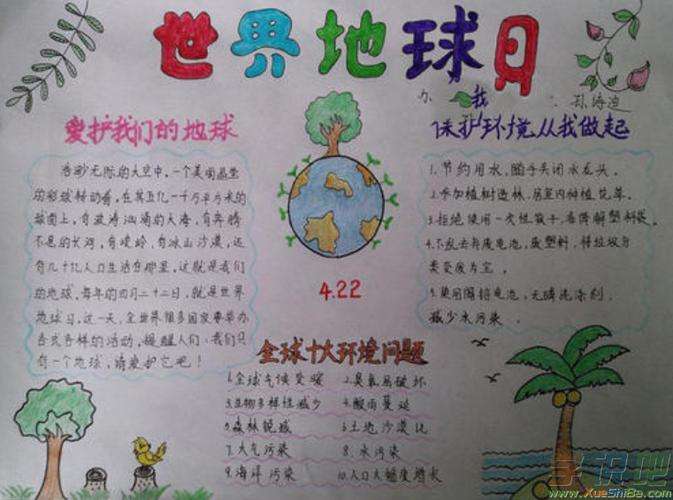 世界地球日
爱护我们的地球
浩渺无际的太空中,一个美丽晶莹
的彩球转动着,在其五亿一千万平方米的
球面上,有波涛汹涌的大海,有奔腾
不息的长河,有峻岭,有冰山沙漠,还
有几十亿人口生活在那里,这就是我们
的地球,每年的四月二十二日,就是世界
地球日,这一天,全世界很多国家要举办
各式各样的活动,提醒人们:我们只
有一个地球,请爱护它吧!
4.22
保护环境,从我做起
1.节约用水,随手关闭水龙头。
2.参加植树造林,居室内种植花草。
3.拒绝使用一次性筷子,难降解塑料袋。
4.不乱丢弃废电池,废塑料,将垃圾分
类变废为宝。
5.使用隔铅电池,无磷洗涤剂,
减少水污染。
全球十大环境问题
1.全球气候变暖
2.臭氧层破坏
3.生物多样性减少
4.酸雨蔓延
5.森林锐减
6.土地沙漠化
7.大气污染
8.水污染
9.海洋污染
10.人口大幅度增长
www.XueShiBa.com